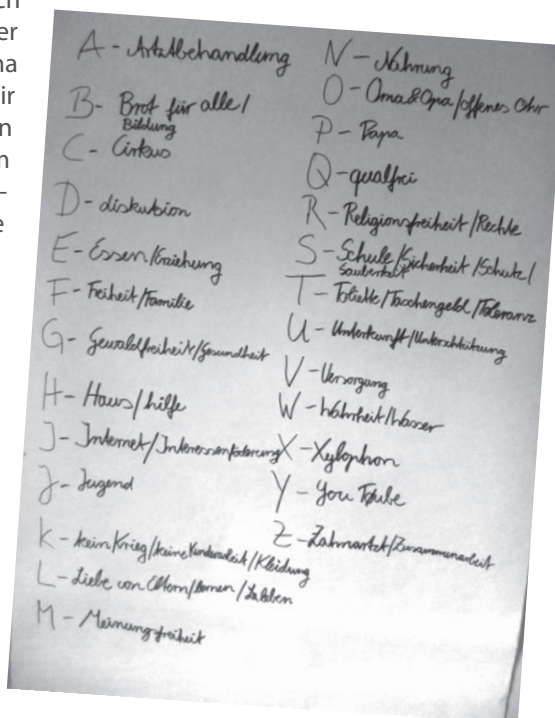 A - Artztbehandlung
B - Brot für alle /
Bildung
C - Cirkus
D - diskution
E - Essen/Erziehung
F - Freiheit/Familie
G - Gewaldfreiheit/Gesundheit
H - Haus/hilfe
I - Internet/Interessenförderung
J - Jugend
K - kein Krieg/keine Kinderarbeit/Kleidung
L - Liebe von Eltern/lernen/
M - Meinungsfreiheit
N - Nahrung
O - Oma&Opa/offenes Ohr
P - Papa
Q - qualfrei
R - Religionsfreiheit/Rechte
S - Schule/Sicherheit/Schutz/
Sauberkeit
T - Toliette/Tacchengeld/Toleranz
U - Unterkunft/Unterschtützung
V - Versorgung
W - Wahrheit/Wasser
X - Xylophon
Y - You Tube
Z - Zahnartzt/Zusammenarbeit